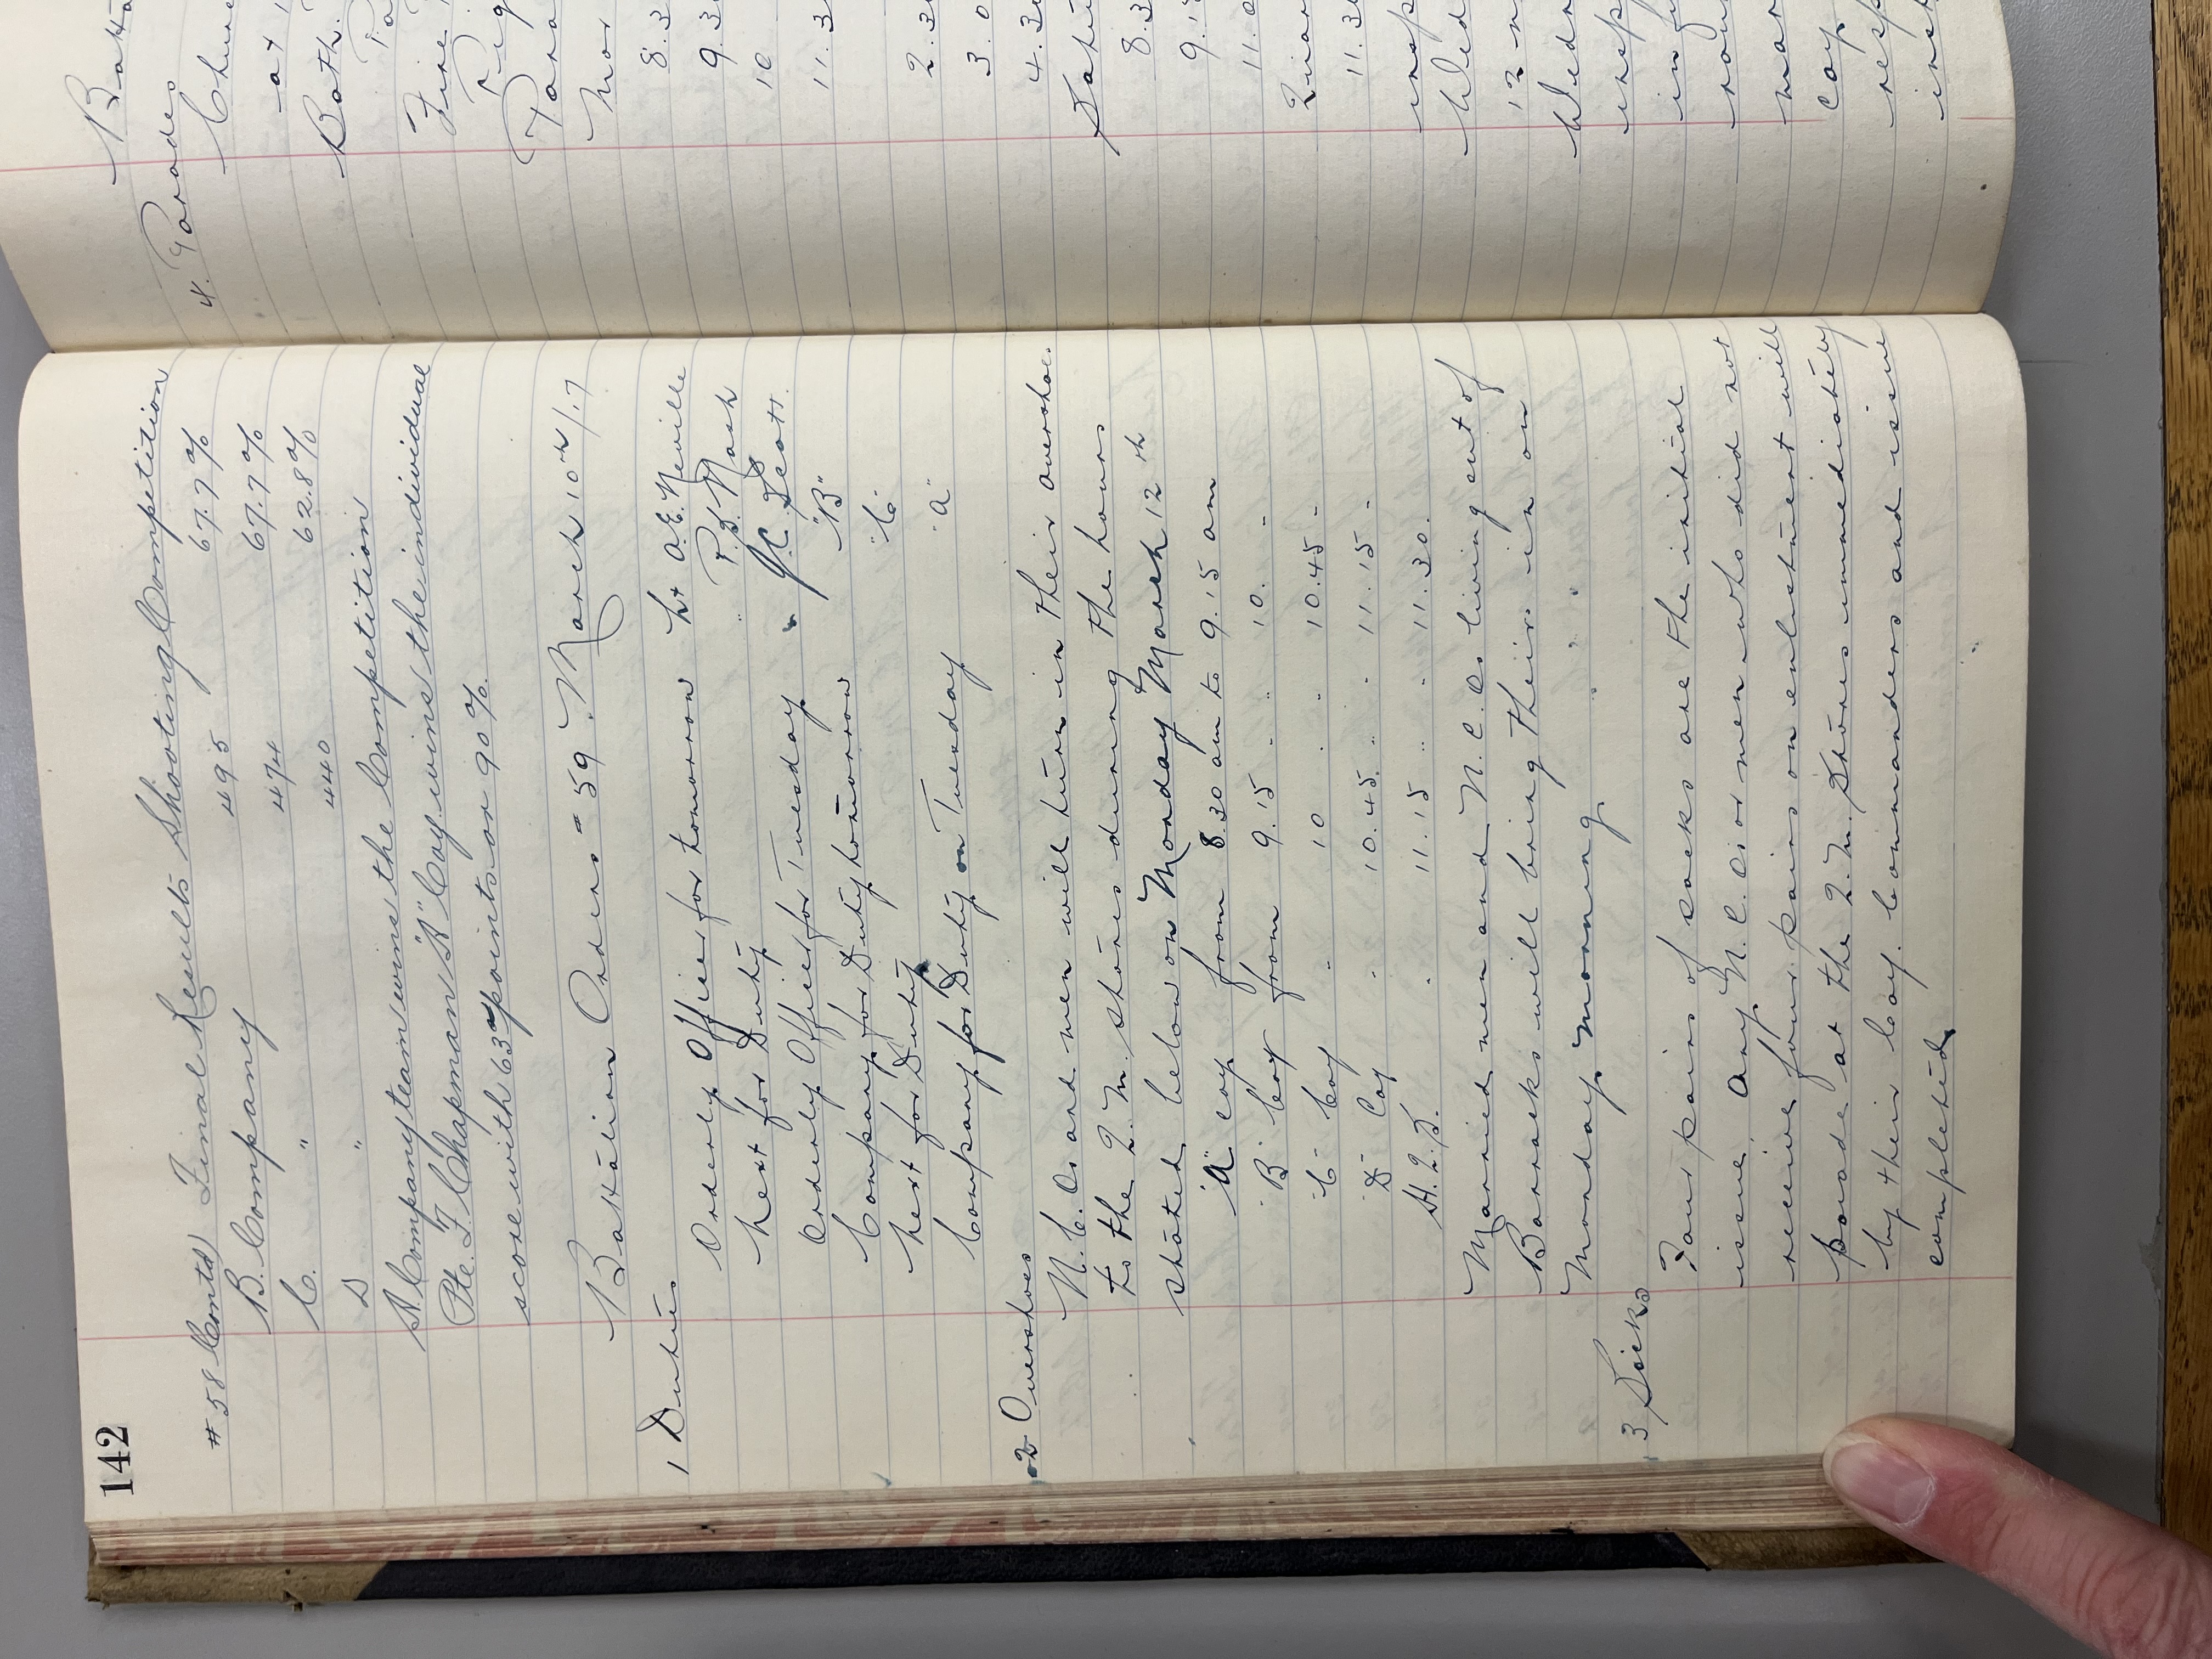 142
#58 Contd) Final Results Shooting Competition
B. Company 495 67.7%
C. " 474 67.7%
D " 440 62.8%
A. Company team wins the Competition
Pte. F. Chapman "A" Coy. wins the individual
score with 63 points or 90%.
Battalion Orders - 59. March 10th/17
1 Duties
Orderly Officer for tomorrow Lt A.E. Neville
Next for Duty " P.S. Nash
Orderly Officer for Tuesday " J.C. Scott.
Company for Duty tomorrow "B"
Next for Duty "C"
Company for Duty on Tuesday "A"
2 Overshoes
N.C.Os and men will turn in their overshoes
to the Q.M. stores during the hours
stated below on Monday March 12th
"A" Coy from 8.30 am to 9.15 am
"B" Coy from 9.15 - " 10. -
"C" Coy " 10 . " 10.45 -
"D" Coy " 10.45. " - 11.15 -
H.Q.S. " 11.15 " - 11.30.
Married men and N.C.Os living out of
Barracks will bring theirs in on
Monday morning
3 Socks
Four pairs of socks are the initial
issue. Any N.C.O. or men who did not
receive four pairs on enlistment will
parade at the Q.M. Stores immediately
by their Coy. Commanders and issue
completed
Batta
4. Parades
Chur
at
Both
Fire
Para
Mor
8.3
9.3
10
11.3
2.3
3.0
4.3
Satu
8.3
9.1
11.0
11.3
insp
Wed
12
Wedn
insp
in
mar
Coy.
resp
inst